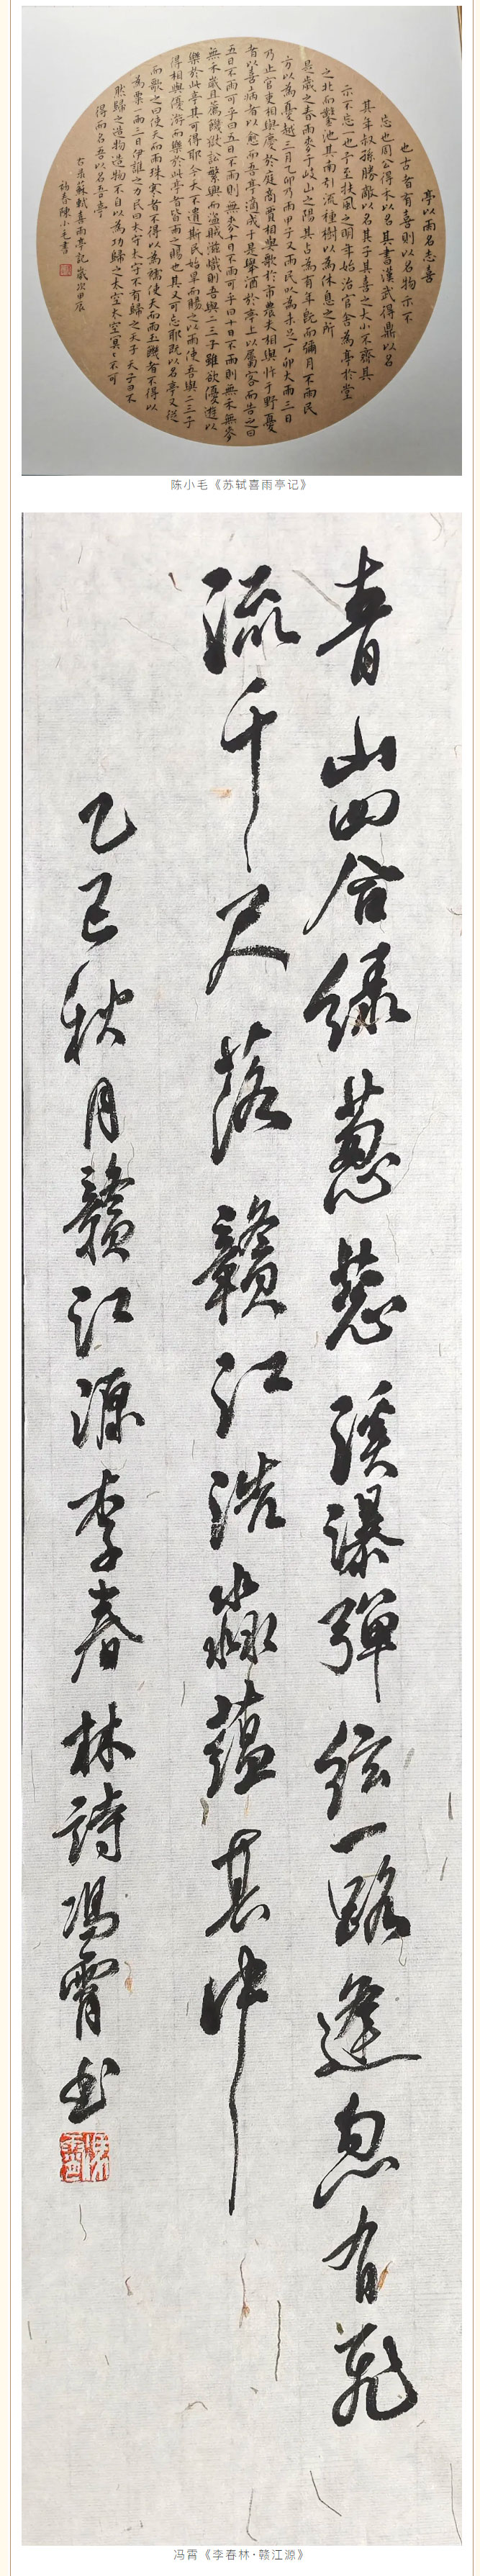 亭以雨名志喜
也古者有喜則以名物示不
忘也周公得禾以名其書漢武得鼎以名
其年叔孫勝敵以名其子其喜之大小不齊其
示不忘一也予至扶風之明年始治官舍為亭於堂
之北而鑿池其南引流種樹以為休息之所
是歲之春雨麥于岐山之陽其占為有年既而彌月不雨民
方以為憂越三月乙卯乃雨甲子又雨民以為未足丁卯大雨三日
乃止官吏相與慶於庭商賈相與歌於市農夫相與忭于野憂
者以喜病者以愈而吾亭適成于是舉酒於亭上以屬客而告之曰
五日不雨可乎曰五日不雨則無麥十日不雨可乎曰十日不雨則無禾無麥
無禾歲且薦饑獄訟繁興而盜賊滋熾則吾與二三子雖欲優遊以
樂於此亭其可得耶今天不遺斯民始旱而賜之以雨使吾與二三子
得相與優游而樂於此亭者皆雨之賜也其又可忘耶既以名亭又從
而歌之曰使天而雨珠寒者不得以為襦使天而雨玉饑者不得以
為粟一雨三日伊誰之力民曰太守太守不有歸之天子天子曰不
然歸之造物造物不自以為功歸之太空太空冥冥不可
得而名吾以名吾亭
右錄蘇軾喜雨亭記歲次甲辰
初春陳小毛書
陈小毛《苏轼喜雨亭记》
青山四合緑葱葱溪瀑彈弦一路逢忽有飛
流千尺落贛江浩淼蕴其中
乙巳秋月贛江源李春林詩馮霄書
冯霄《李春林·赣江源》